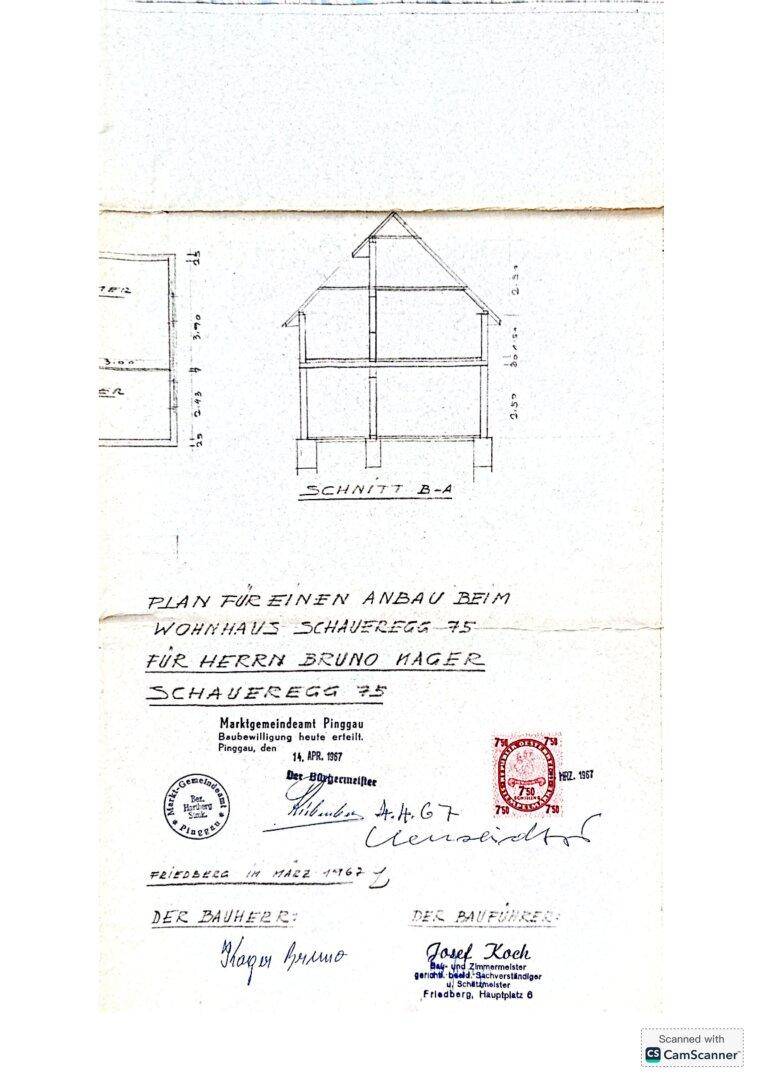 TER
3.00
ER
25
3.70
7
2.43
25
2.50
30
1.50
2.50
SCHNITT B-A
PLAN FÜR EINEN ANBAU BEIM
WOHNHAUS SCHAUEREGG 75
FÜR HERRN BRUNO KAGER
SCHAUEREGG 75
Marktgemeindeamt Pinggau
Baubewilligung heute erteilt.
Pinggau, den
14. APR. 1967
Der Bürgermeister
Marktgemeindeamt
Bez.
Hartberg
Stmk.
Pinggau
7 50 7 50
REPUBLIK OESTERREICH
7 50
SCHILLING
STEMPELMARKE
7 50 7 50
MRZ. 1967
4.4.67
FRIEDBERG IM MÄRZ 1967
DER BAUHERR: DER BAUFÜHRER:
Kager Bruno
Josef Koch
Bau- und Zimmermeister
gerichtl. beeid. Sachverständiger
u. Schätzmeister
Friedberg, Hauptplatz 6
Scanned with
CS CamScanner